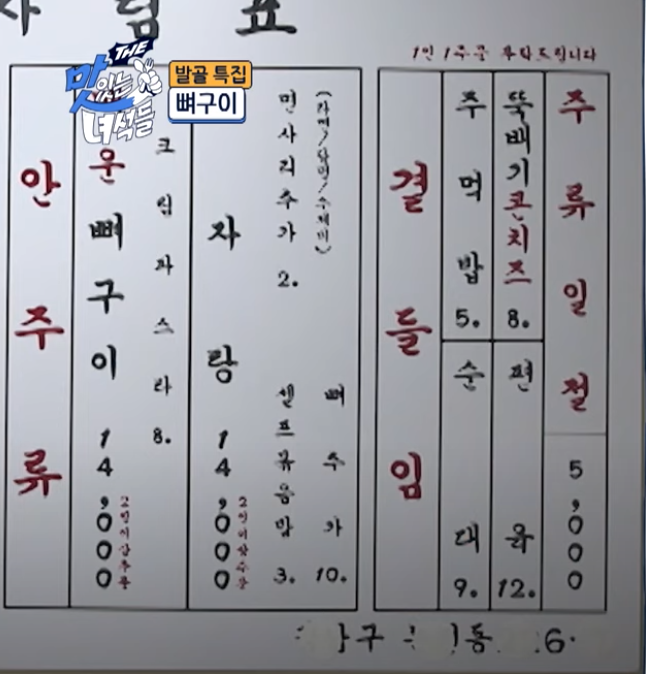 차림표
THE 맛있는 녀석들
발골 특집
뼈구이
1인 1주문 부탁드립니다
안주류
운뼈구이 14,000
2인이상주문
크림파스타 8.
자탕 14,000
2인이상주문
면사리추가 2.
(라면/당면/수제비)
셀프볶음밥 3.
뼈추가 10.
곁들임
주먹밥 5.
순대 9.
뚝배기콘치즈 8.
편육 12.
주류일절 5,000